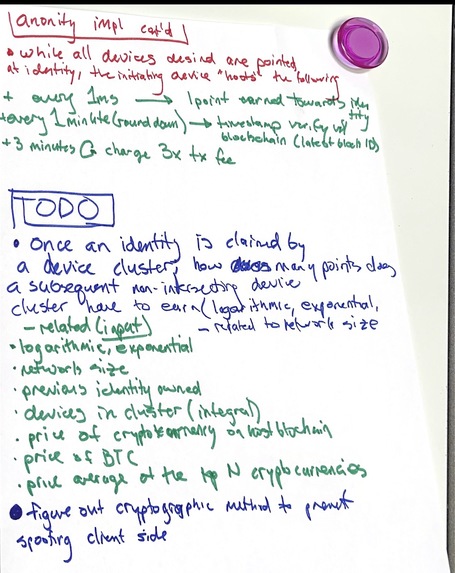 anonity impl cont'd
• while all devices desired are pointed
at identity, the initiating device "hosts" the following
+ every 1ms → 1 point earned towards identity
+ every 1 minute (round down) → timestamp verify w/
blockchain (latest block ID)
+ 3 minutes charge 3x tx fee
TODO
• Once an identity is claimed by
a device cluster, how many points does
a subsequent non-intersecting device
cluster have to earn (logarithmic, exponential,
– related (input) – related to network size
• logarithmic, exponential
• network size
• previous identity owned
• devices in cluster (integral)
• price of cryptocurrency on host blochain
• price of BTC
• price average of the top N cryptocurrencies
• figure out cryptographic method to prevent
spoofing client side